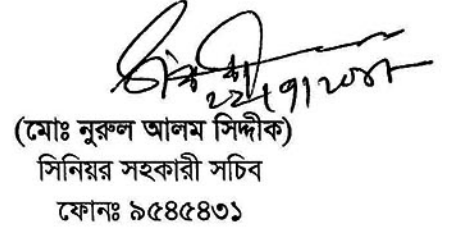 (মোঃ নুরুল আলম সিদ্দীক)
সিনিয়র সহকারী সচিব
ফোনঃ ৯৫৪৫৪৩১